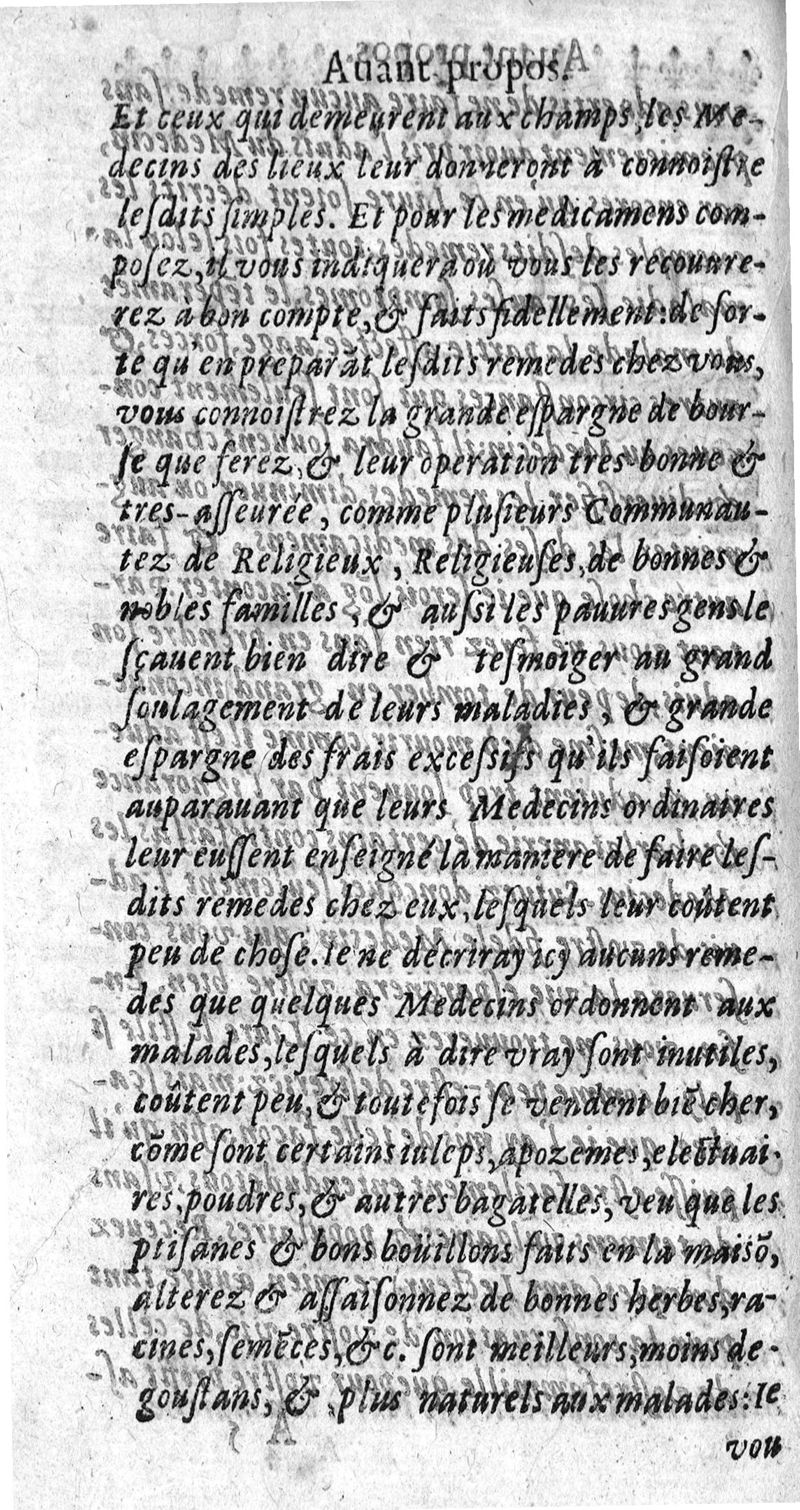 Auant propos.
Et ceux qui demeurent aux champs, les Me-
decins des lieux leur donneront à connoiſtre
leſdits ſimples. Et pour les medicamens com-
poſez, il vous indiquera où vous les recouure-
rez à bon compte, & faits fidellement: de ſor-
te qu'en preparãt leſdits remedes chez vous,
vous connoiſtrez la grande eſpargne de bour-
ſe que ferez, & leur operation tres-bonne &
tres-aſſeurée, comme pluſieurs Communau-
tez de Religieux, Religieuſes, de bonnes &
nobles familles, & auſſi les pauures gens le
ſçauent bien dire & teſmoiger au grand
ſoulagement de leurs maladies, & grande
eſpargne des frais exceſſifs qu'ils faiſoient
auparauant que leurs Medecins ordinaires
leur euſſent enſeigné la maniere de faire leſ-
dits remedes chez eux, leſquels leur coûtent
peu de choſe. Ie ne décriray icy aucuns reme-
des que quelques Medecins ordonnent aux
malades, leſquels à dire vray ſont inutiles,
coûtent peu, & toutefois ſe vendent biẽ cher,
cõme ſont certains iuleps, apozemes, electuai-
res, poudres, & autres bagatelles, veu que les
ptiſanes & bons boüillons faits en la maiſõ,
alterez & aſſaiſonnez de bonnes herbes, ra-
cines, ſemẽces, &c. ſont meilleurs, moins de-
gouſtans, & plus naturels aux malades: Ie
vou